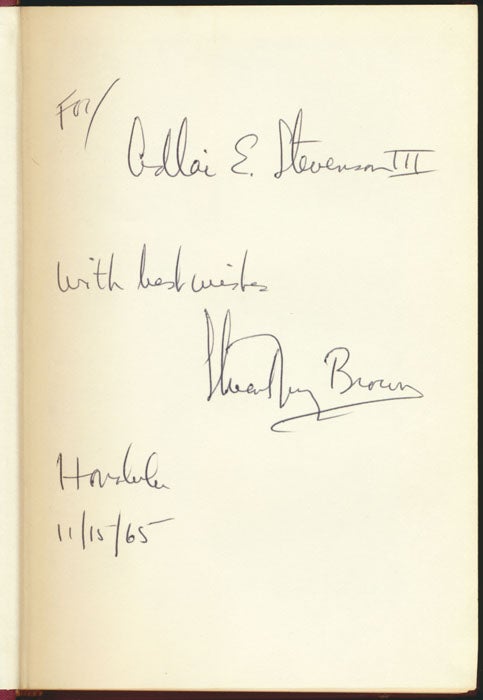 For/
Adlai E. Stevenson III
with best wishes
Stuart Gerry Brown
Honolulu
11/15/65